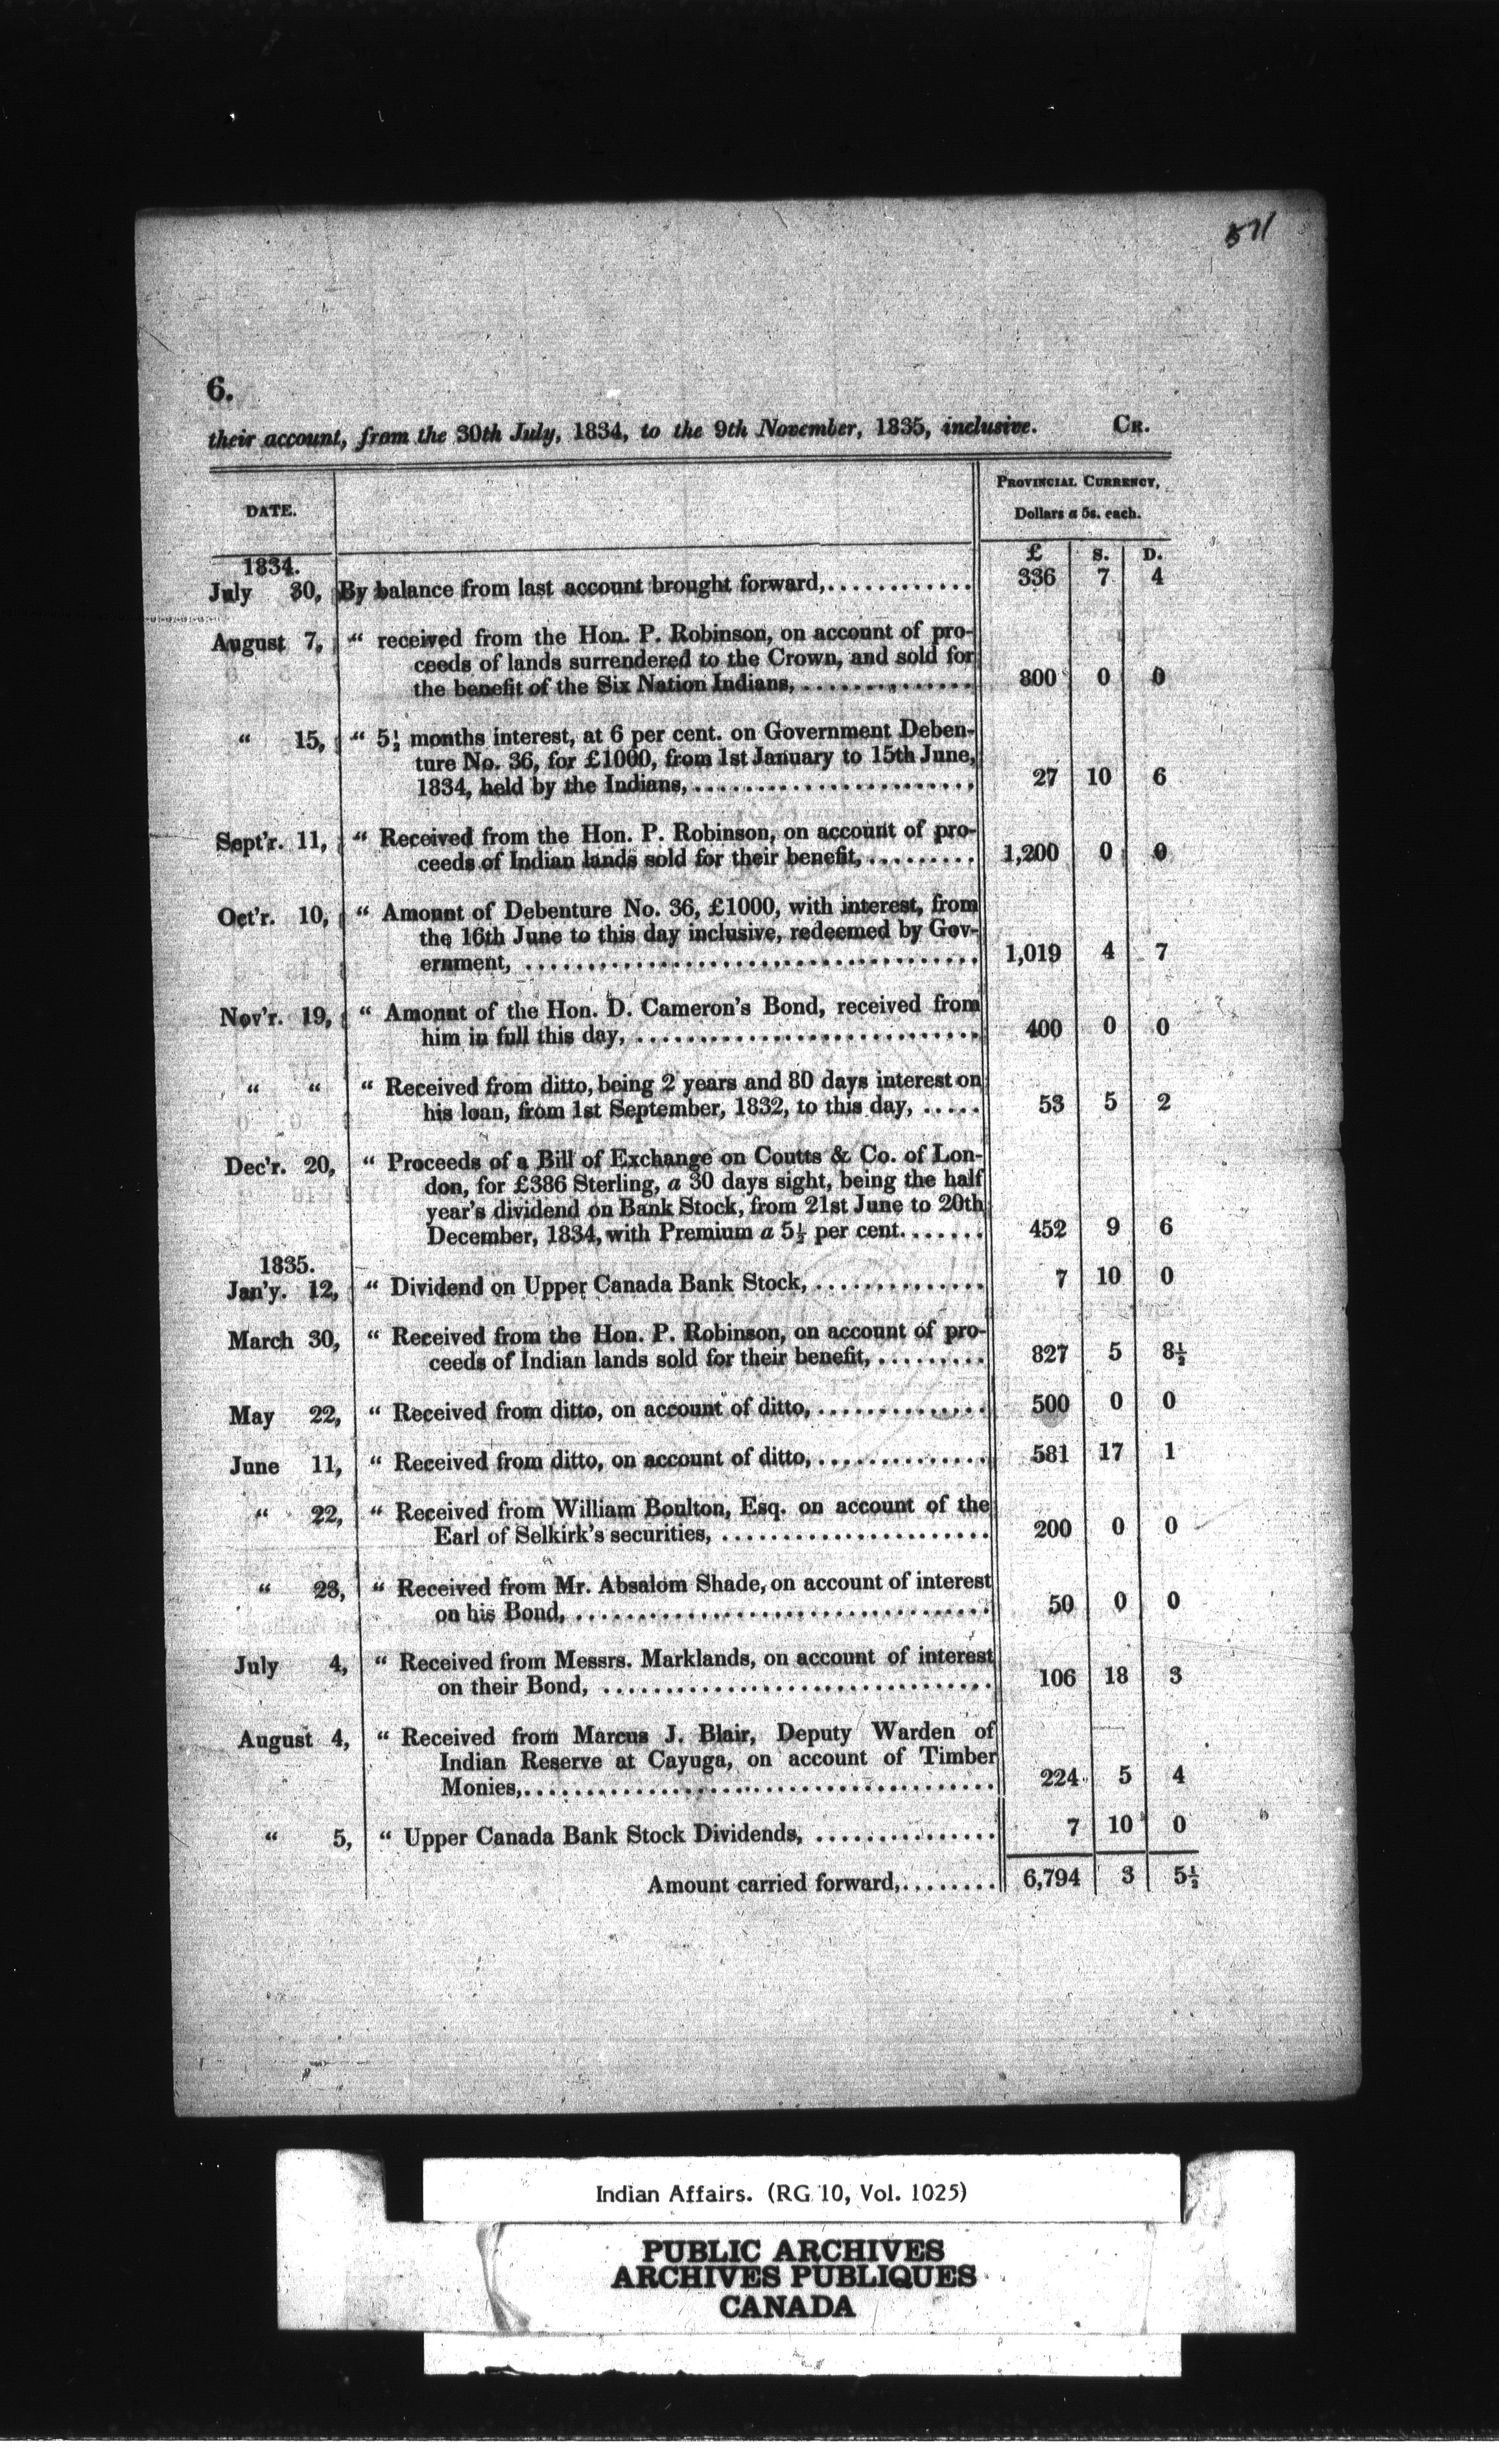 571
6.
their account, from the 30th July, 1834, to the 9th November, 1835, inclusive. CR.
DATE. PROVINCIAL CURRENCY,
Dollars a 5s. each.
£ S. D.
1834.
July 30, By balance from last account brought forward,............ 336 7 4
August 7, “ received from the Hon. P. Robinson, on account of pro-
ceeds of lands surrendered to the Crown, and sold for
the benefit of the Six Nation Indians,.............. 800 0 0
“ 15, “ 5½ months interest, at 6 per cent. on Government Deben-
ture No. 36, for £1000, from 1st January to 15th June,
1834, held by the Indians,...................... 27 10 6
Sept'r. 11, “ Received from the Hon. P. Robinson, on account of pro-
ceeds of Indian lands sold for their benefit,......... 1,200 0 0
Oct'r. 10, “ Amonnt of Debenture No. 36, £1000, with interest, from
the 16th June to this day inclusive, redeemed by Gov-
ernment, .................................... 1,019 4 7
Nov'r. 19, “ Amonnt of the Hon. D. Cameron's Bond, received from
him in full this day, ........................... 400 0 0
“ “ “ Received from ditto, being 2 years and 80 days interest on
his loan, from 1st September, 1832, to this day, ..... 53 5 2
Dec'r. 20, “ Proceeds of a Bill of Exchange on Coutts & Co. of Lon-
don, for £386 Sterling, a 30 days sight, being the half
year's dividend on Bank Stock, from 21st June to 20th
December, 1834, with Premium a 5½ per cent....... 452 9 6
1835.
Jan'y. 12, “ Dividend on Upper Canada Bank Stock, .............. 7 10 0
March 30, “ Received from the Hon. P. Robinson, on account of pro-
ceeds of Indian lands sold for their benefit, ......... 827 5 8½
May 22, “ Received from ditto, on account of ditto, .............. 500 0 0
June 11, “ Received from ditto, on account of ditto, .............. 581 17 1
“ 22, “ Received from William Boulton, Esq. on account of the
Earl of Selkirk's securities, ..................... 200 0 0
“ 23, “ Received from Mr. Absalom Shade, on account of interest
on his Bond, ................................. 50 0 0
July 4, “ Received from Messrs. Marklands, on account of interest
on their Bond, ............................... 106 18 3
August 4, “ Received from Marcus J. Blair, Deputy Warden of
Indian Reserve at Cayuga, on account of Timber
Monies,..................................... 224 5 4
“ 5, “ Upper Canada Bank Stock Dividends, ............... 7 10 0
Amount carried forward,........ 6,794 3 5½
Indian Affairs. (RG 10, Vol. 1025)
PUBLIC ARCHIVES
ARCHIVES PUBLIQUES
CANADA